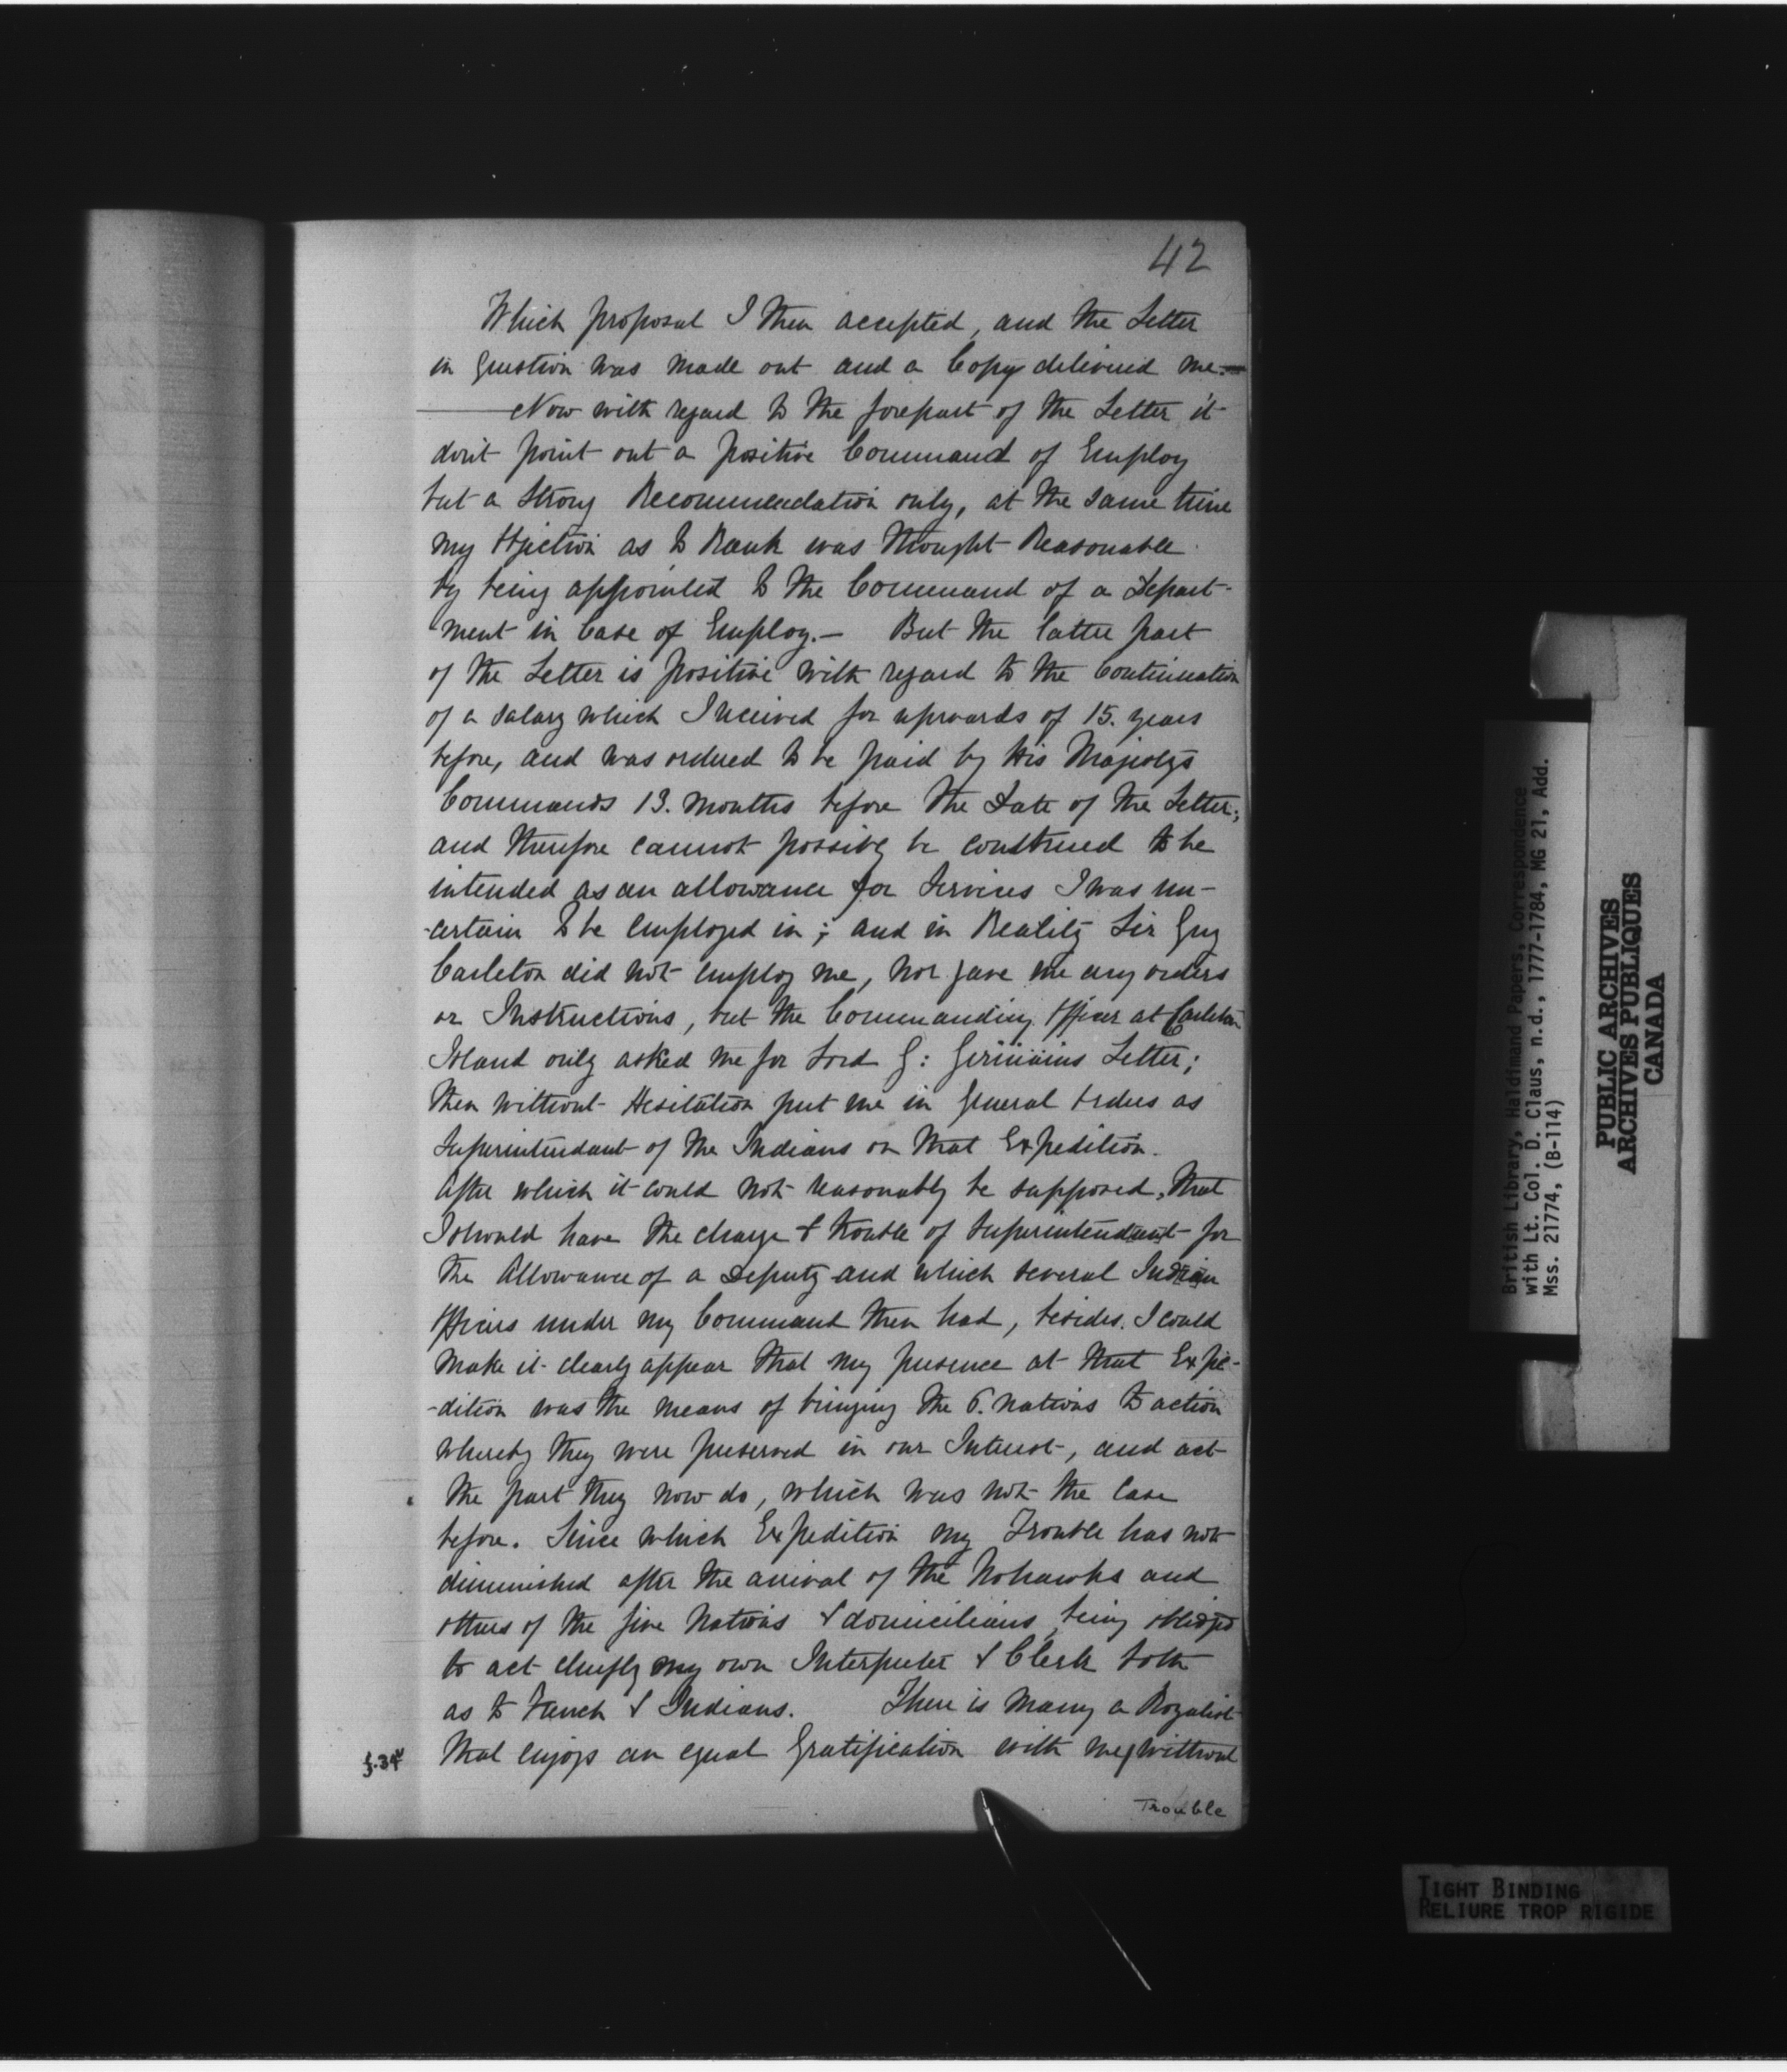 42
Which proposal I then accepted, and the Letter
in Question was made out and a Copy delivered me.—
Now with regard to the forepart of the Letter it
don't point out a positive Command of Employ
but a strong Recommendation only, at the same time
my Objection as to Rank was thought Reasonable
by being appointed to the Command of a Depart-
-ment in Case of Employ.— But the latter part
of the Letter is positive with regard to the Continuation
of a Salary which I received for upwards of 15. years
before, and was ordered to be paid by His Majestys
Commands 13. Months before the Date of the Letter;
and therefore cannot possibly be construed to be
intended as an allowance for Services I was un-
-certain to be employed in; and in Reality Sir Guy
Carleton did not employ me, nor gave me any orders
or Instructions, but the Commanding Officer at Carleton
Island only asked me for Lord G: Germains Letter;
then without Hesitation put me in General Orders as
Superintendant of the Indians on that Expedition.
After which it could not reasonably be supposed, that
I should have the charge & trouble of Superintendant for
the Allowance of a Deputy and which several Indian
Officers under my Command then had, besides. I could
make it clearly appear that my presence at that Expe-
-dition was the means of bringing the 6. Nations to action
whereby they were preserved in our Interest, and act
the part they now do, which was not the Case
before. Since which Expedition my Trouble has not
diminished after the arrival of the Mohawks and
others of the five Nations & domicilians, being obliged
to act chiefly my own Interpreter & Clerk both
as to French & Indians. There is many a Royalist
that enjoys an equal Gratification with me, without
Trouble
British Library, Haldimand Papers, Correspondence
with Lt. Col. D. Claus, n.d., 1777-1784, MG 21, Add.
Mss. 21774, (B-114)
PUBLIC ARCHIVES
ARCHIVES PUBLIQUES
CANADA
TIGHT BINDING
RELIURE TROP RIGIDE